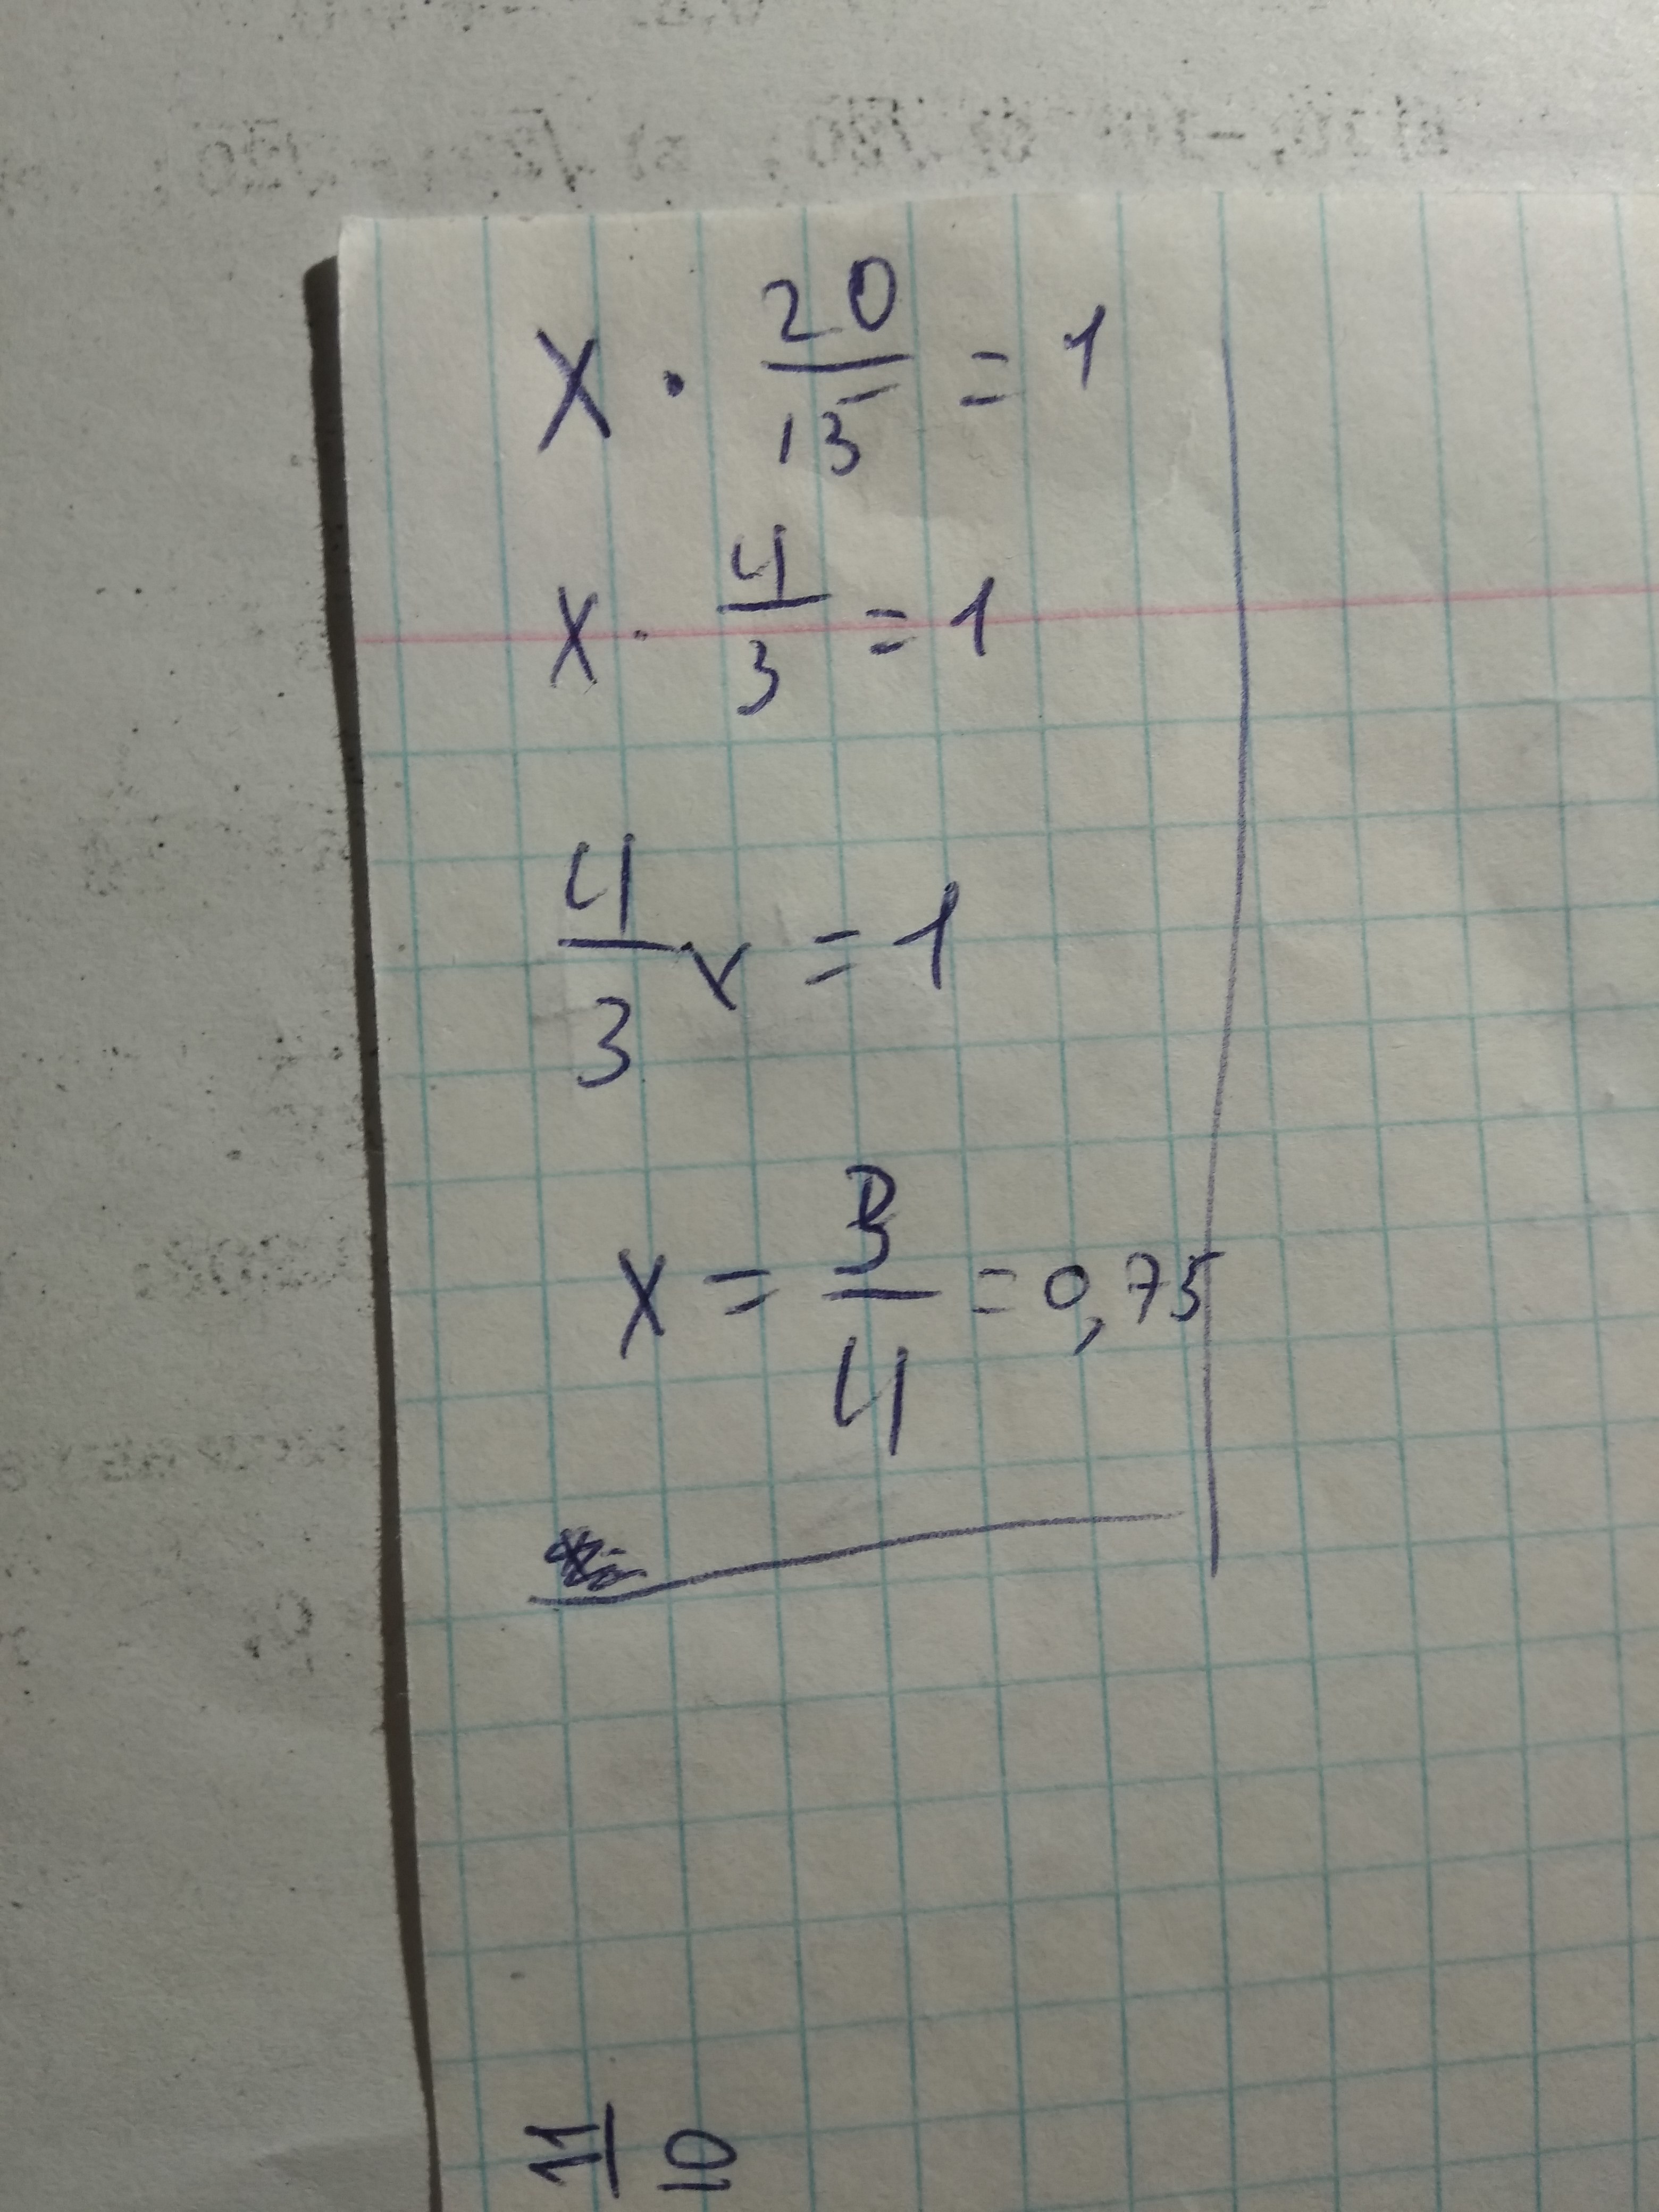 x · 20/15 = 1
x · 4/3 = 1
4/3 x = 1
x = 3/4 = 0,75
11/10